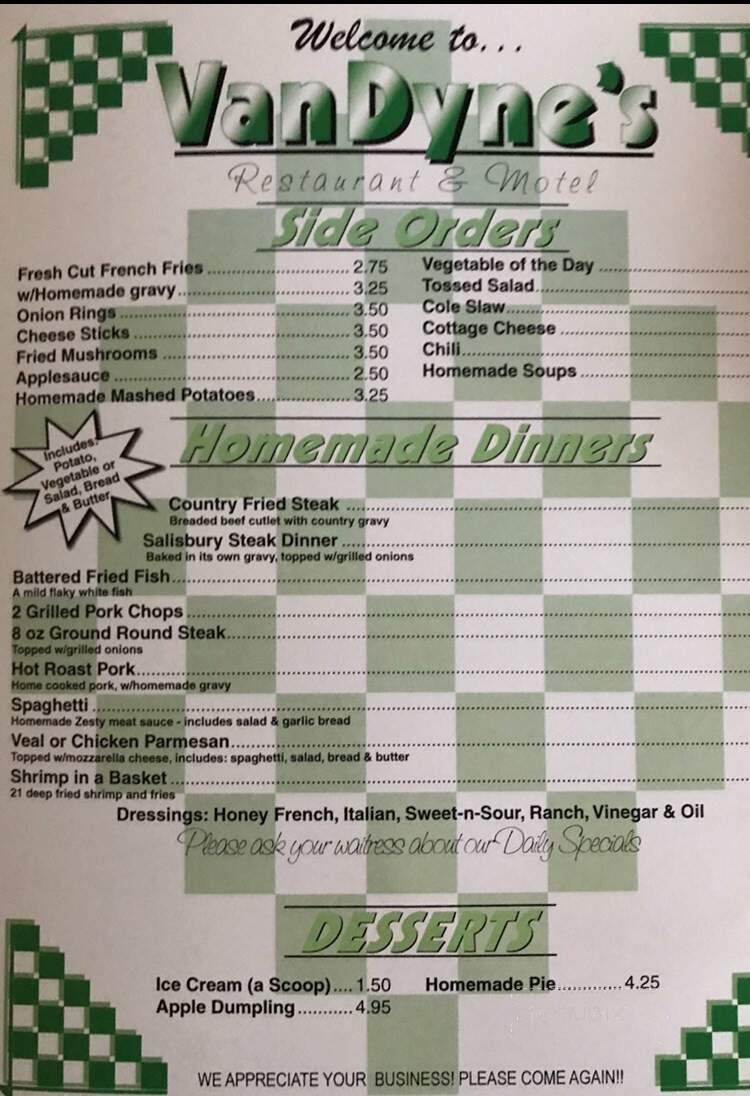 Welcome to...
VanDyne's
Restaurant & Motel
Side Orders
Fresh Cut French Fries 2.75
w/Homemade gravy 3.25
Onion Rings 3.50
Cheese Sticks 3.50
Fried Mushrooms 3.50
Applesauce 2.50
Homemade Mashed Potatoes 3.25
Vegetable of the Day
Tossed Salad
Cole Slaw
Cottage Cheese
Chili
Homemade Soups
Homemade Dinners
Includes:
Potato,
Vegetable or
Salad, Bread
& Butter
Country Fried Steak
Breaded beef cutlet with country gravy
Salisbury Steak Dinner
Baked in its own gravy, topped w/grilled onions
Battered Fried Fish
A mild flaky white fish
2 Grilled Pork Chops
8 oz Ground Round Steak
Topped w/grilled onions
Hot Roast Pork
Home cooked pork, w/homemade gravy
Spaghetti
Homemade Zesty meat sauce - includes salad & garlic bread
Veal or Chicken Parmesan
Topped w/mozzarella cheese, includes: spaghetti, salad, bread & butter
Shrimp in a Basket
21 deep fried shrimp and fries
Dressings: Honey French, Italian, Sweet-n-Sour, Ranch, Vinegar & Oil
Please ask your waitress about our Daily Specials
DESSERTS
Ice Cream (a Scoop).... 1.50
Apple Dumpling........... 4.95
Homemade Pie............. 4.25
WE APPRECIATE YOUR BUSINESS! PLEASE COME AGAIN!!